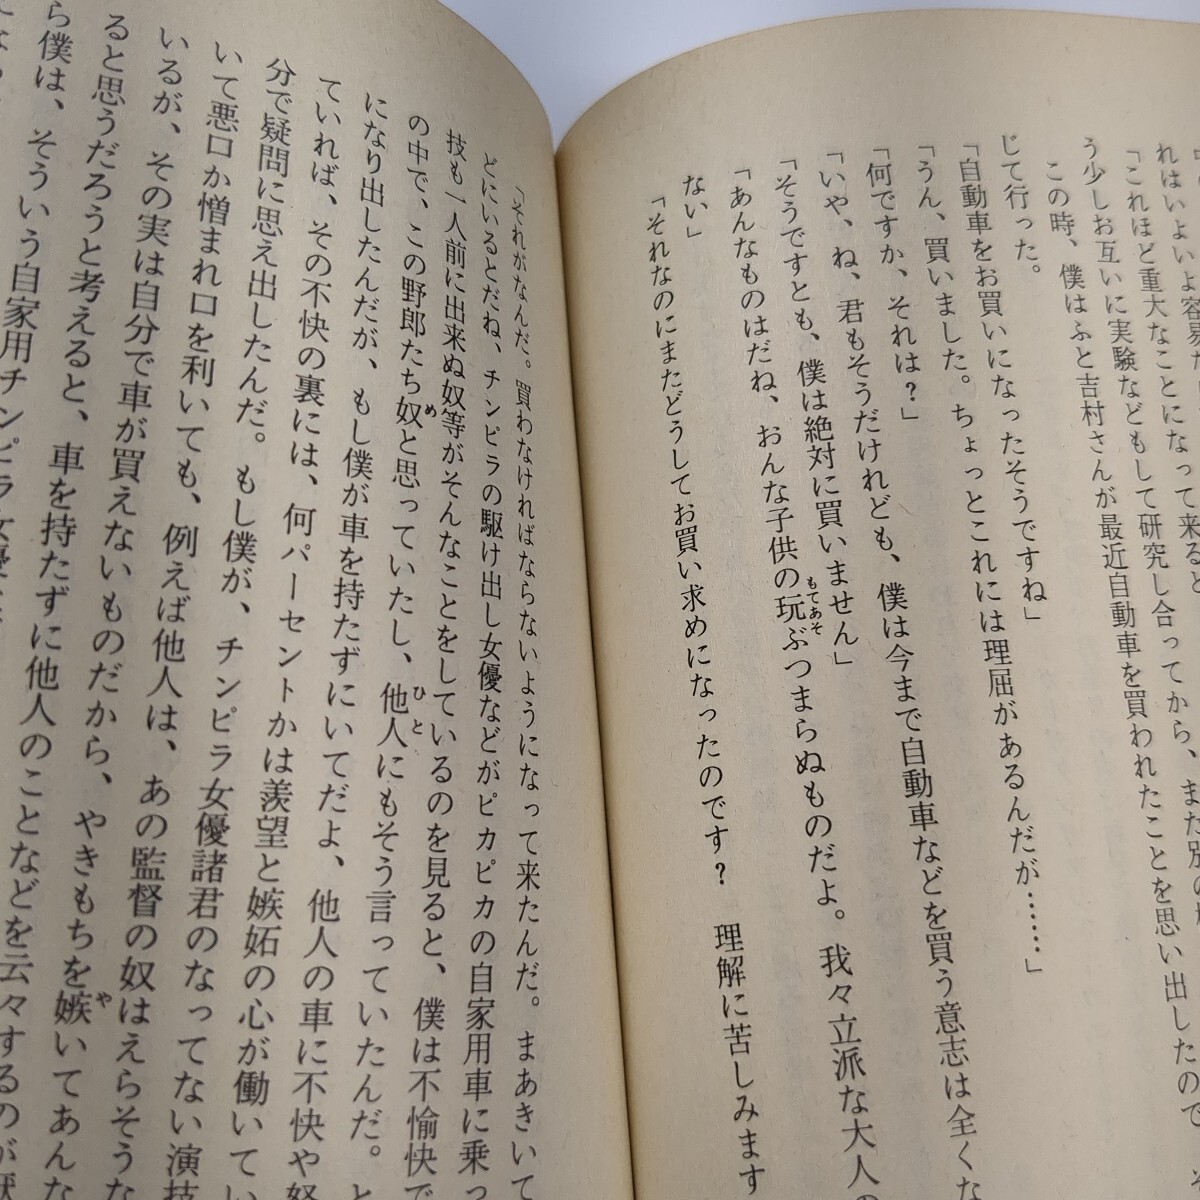 れはいよいよ容易だ
「これほど重大なことになって来ると
う少しお互いに実験などもして研究し合ってから、また別の
この時、僕はふと吉村さんが最近自動車を買われたことを思い出したので
じて行った。
「自動車をお買いになったそうですね」
「うん、買いました。ちょっとこれには理屈があるんだが……」
「何ですか、それは?」
「いや、ね、君もそうだけれども、僕は今まで自動車などを買う意志は全くな
「そうですとも、僕は絶対に買いません」
「あんなものはだね、おんな子供の玩ぶつまらぬものだよ。我々立派な大人の
もてあそ
ない」
「それなのにまたどうしてお買い求めになったのです? 理解に苦しみます
「それがなんだ。買わなければならないようになって来たんだ。まあきいて
どにいるとだね、チンピラの駆け出し女優などがピカピカの自家用車に乗っ
技も一人前に出来ぬ奴等がそんなことをしているのを見ると、僕は不愉快で
の中で、この野郎たち奴と思っていたし、他人にもそう言っていたんだ。と
め
ひと
になり出したんだが、もし僕が車を持たずにいてだよ、他人の車に不快や怒
ていれば、その不快の裏には、何パーセントかは羨望と嫉妬の心が働いてい
分で疑問に思え出したんだ。もし僕が、チンピラ女優諸君のなってない演技
いて悪口か憎まれ口を利いても、例えば他人は、あの監督の奴はえらそうな
いるが、その実は自分で車が買えないものだから、やきもちを嫉いてあんな
や
ると思うだろうと考えると、車を持たずに他人のことなどを云々するのが厭
ら僕は、そういう自家用チンピラ女優